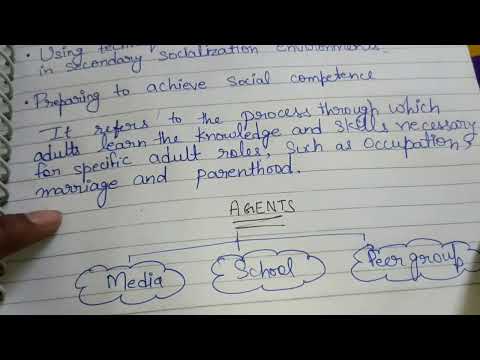 • Using
in secondary socialization environments.
• Preparing to achieve social competence
It refers to the process through which
adults learn the knowledge and skills necessary
for specific adult roles, such as occupations
marriage and parenthood.
AGENTS
Media School Peer group